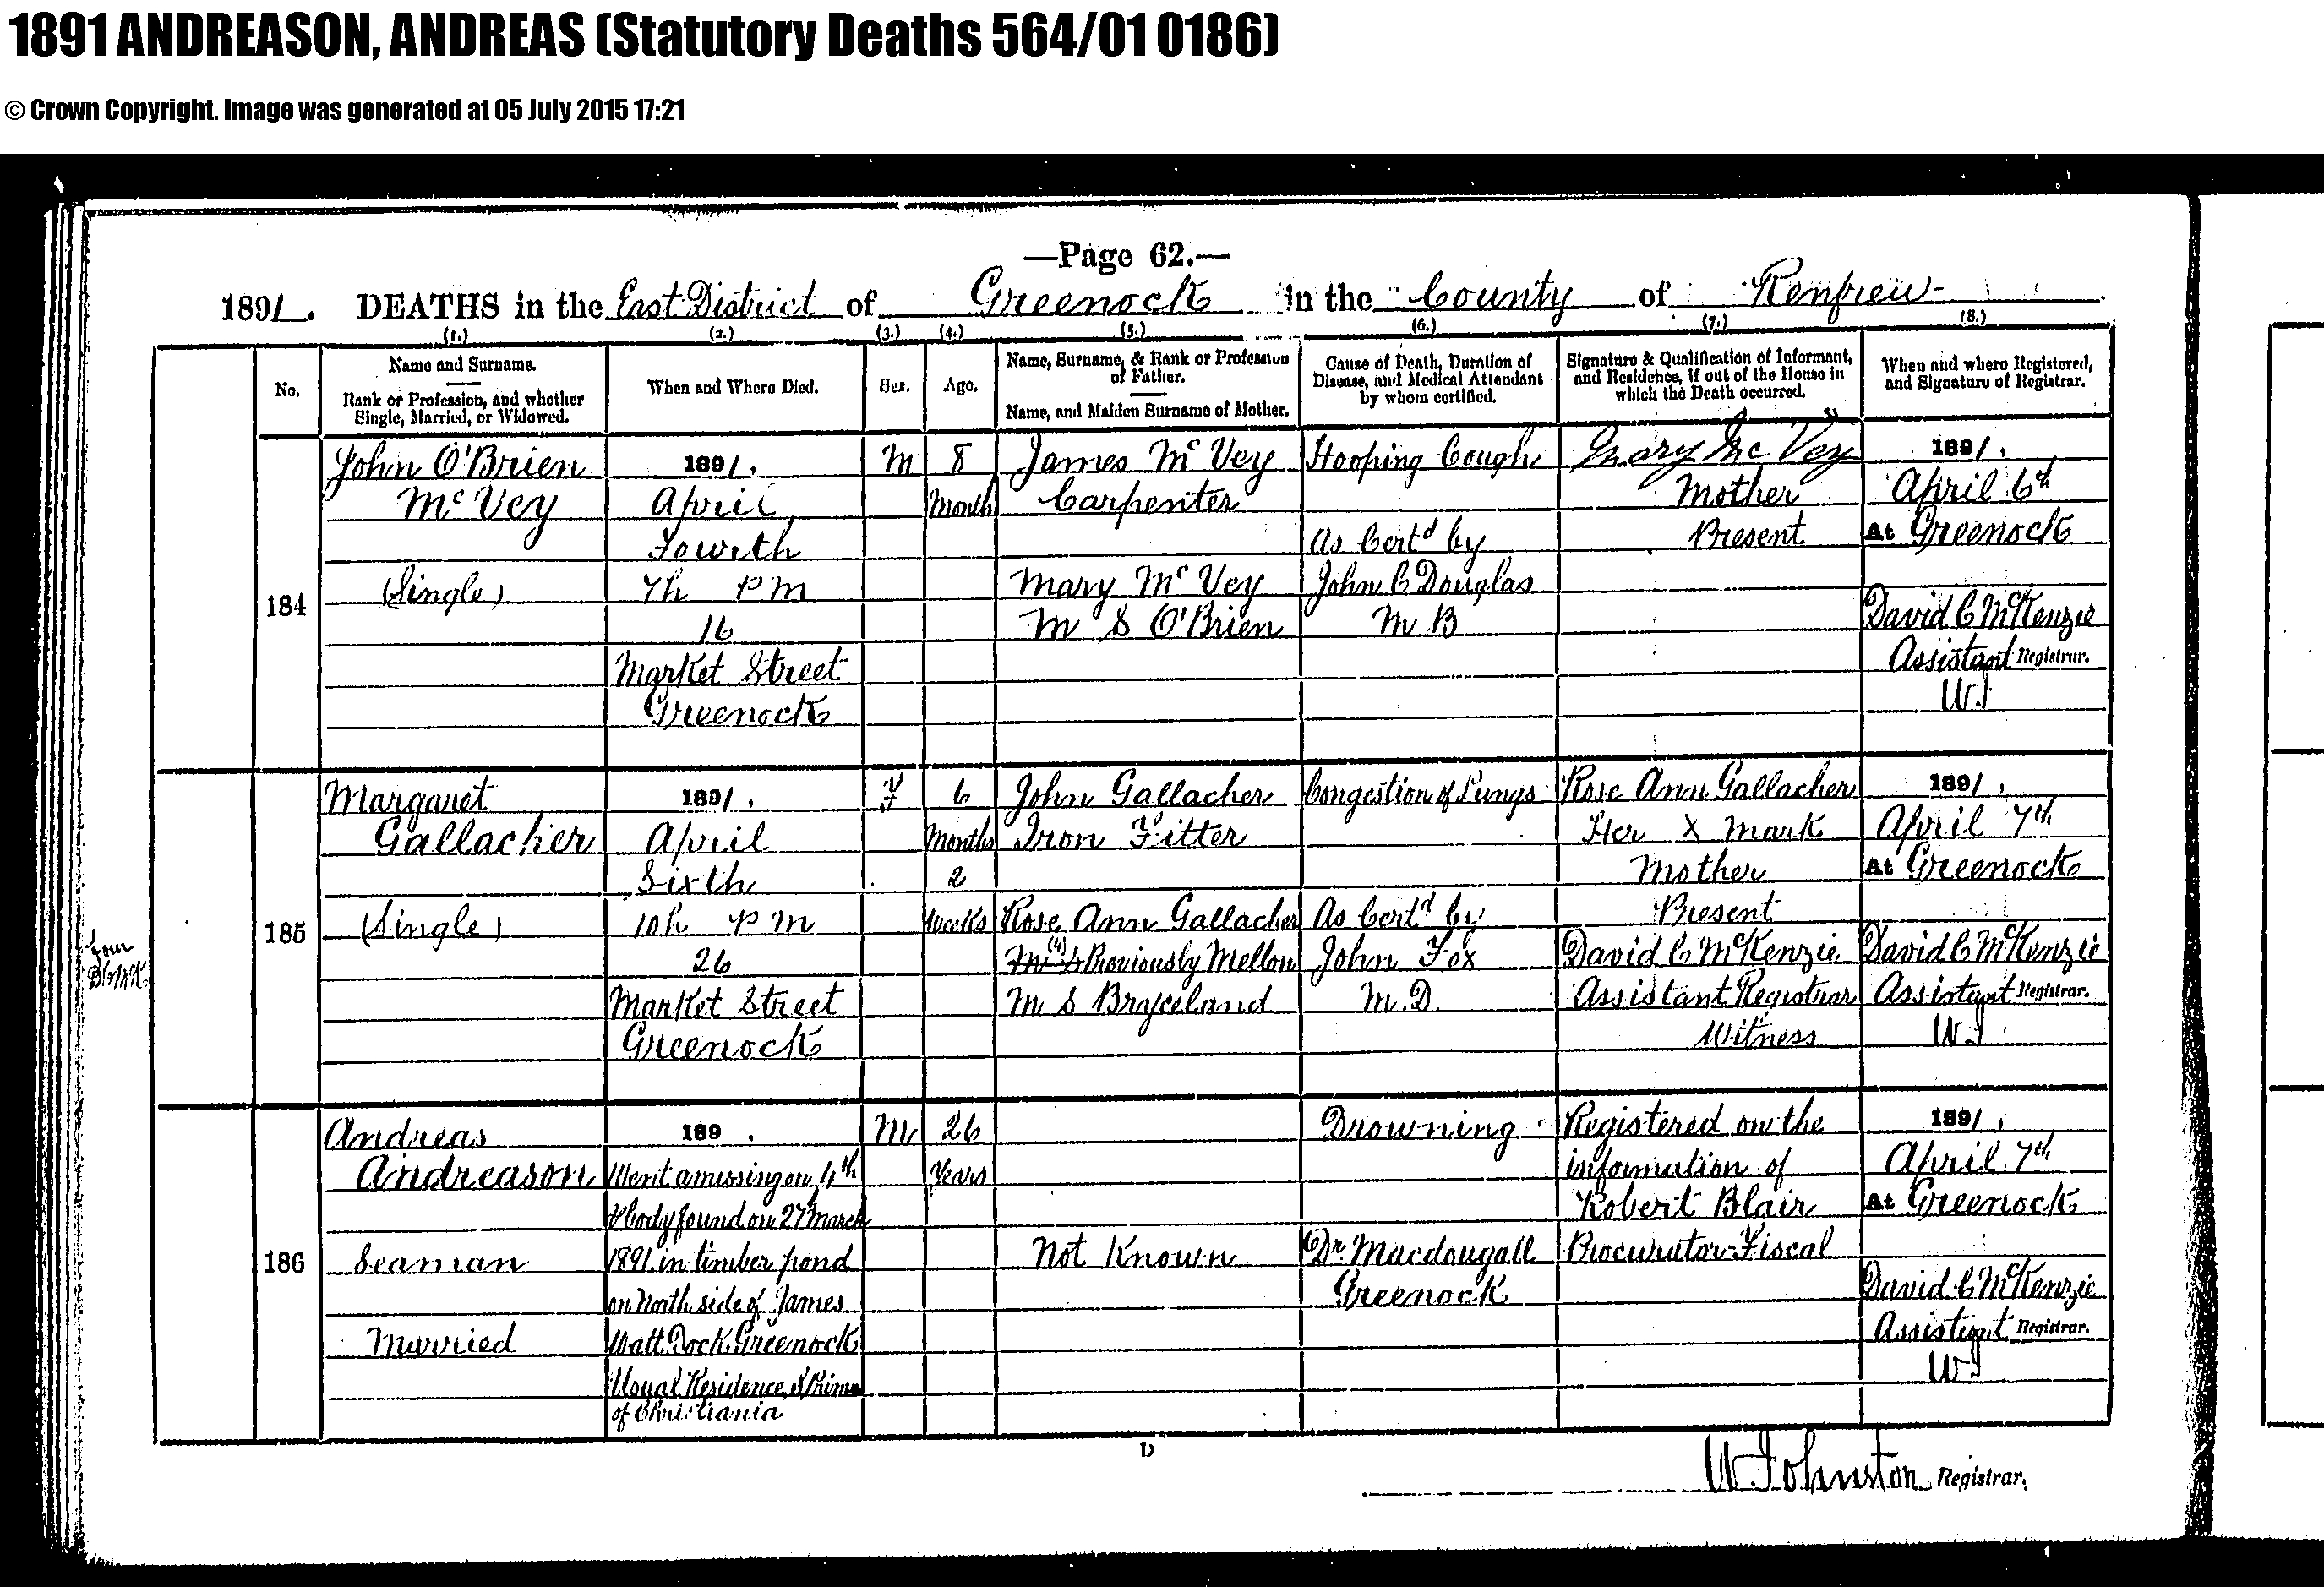 1891 ANDREASON, ANDREAS (Statutory Deaths 564/01 0186)
© Crown Copyright. Image was generated at 05 July 2015 17:21
—Page 62.—
1891. DEATHS in the East District of Greenock in the County of Renfrew
(1.) (2.) (3.) (4.) (5.) (6.) (7.) (8.)
No.
Name and Surname.
Rank or Profession, and whether
Single, Married, or Widowed.
When and Where Died.
Sex.
Age.
Name, Surname, & Rank or Profession
of Father.
Name, and Maiden Surname of Mother.
Cause of Death, Duration of
Disease, and Medical Attendant
by whom certified.
Signature & Qualification of Informant,
and Residence, if out of the House in
which the Death occurred.
When and where Registered,
and Signature of Registrar.
184
John O'Brien
McVey
(Single)
1891.
April
Fowrth
7h PM
16
Market Street
Greenock
M
8
Months
James McVey
Carpenter
Mary McVey
M S O'Brien
Hooping Cough
As Certd by
John C Douglas
M B
Mary McVey
Mother
Present
1891.
April 6th
At Greenock
David C McKenzie
Assistant Registrar.
W.J
185
Margaret
Gallacher
(Single)
1891.
April
Sixth
10h PM
26
Market Street
Greenock
F
6
Months
2
Weeks
John Gallacher
Iron Fitter
Rose Ann Gallacher
Previously Mellon
M S Bryceland
Congestion of Lungs
As Certd by
John Fox
M.D.
Rose Ann Gallacher
Her X Mark
Mother
Present
David C McKenzie
Assistant Registrar
Witness
1891.
April 7th
At Greenock
David C McKenzie
Assistant Registrar.
W.J
186
Andreas
Andreason
Seaman
Married
189 .
Went amissing on 4th
& body found on 27th March
1891 in timber pond
on North side of James
Watt Dock Greenock
Usual Residence
of Christiania
M
26
Years
Not Known
Drowning
Dr Macdougall
Greenock
Registered on the
information of
Robert Blair
Procurator-Fiscal
1891.
April 7th
At Greenock
David C McKenzie
Assistant Registrar.
WJ
D
W Johnston Registrar.